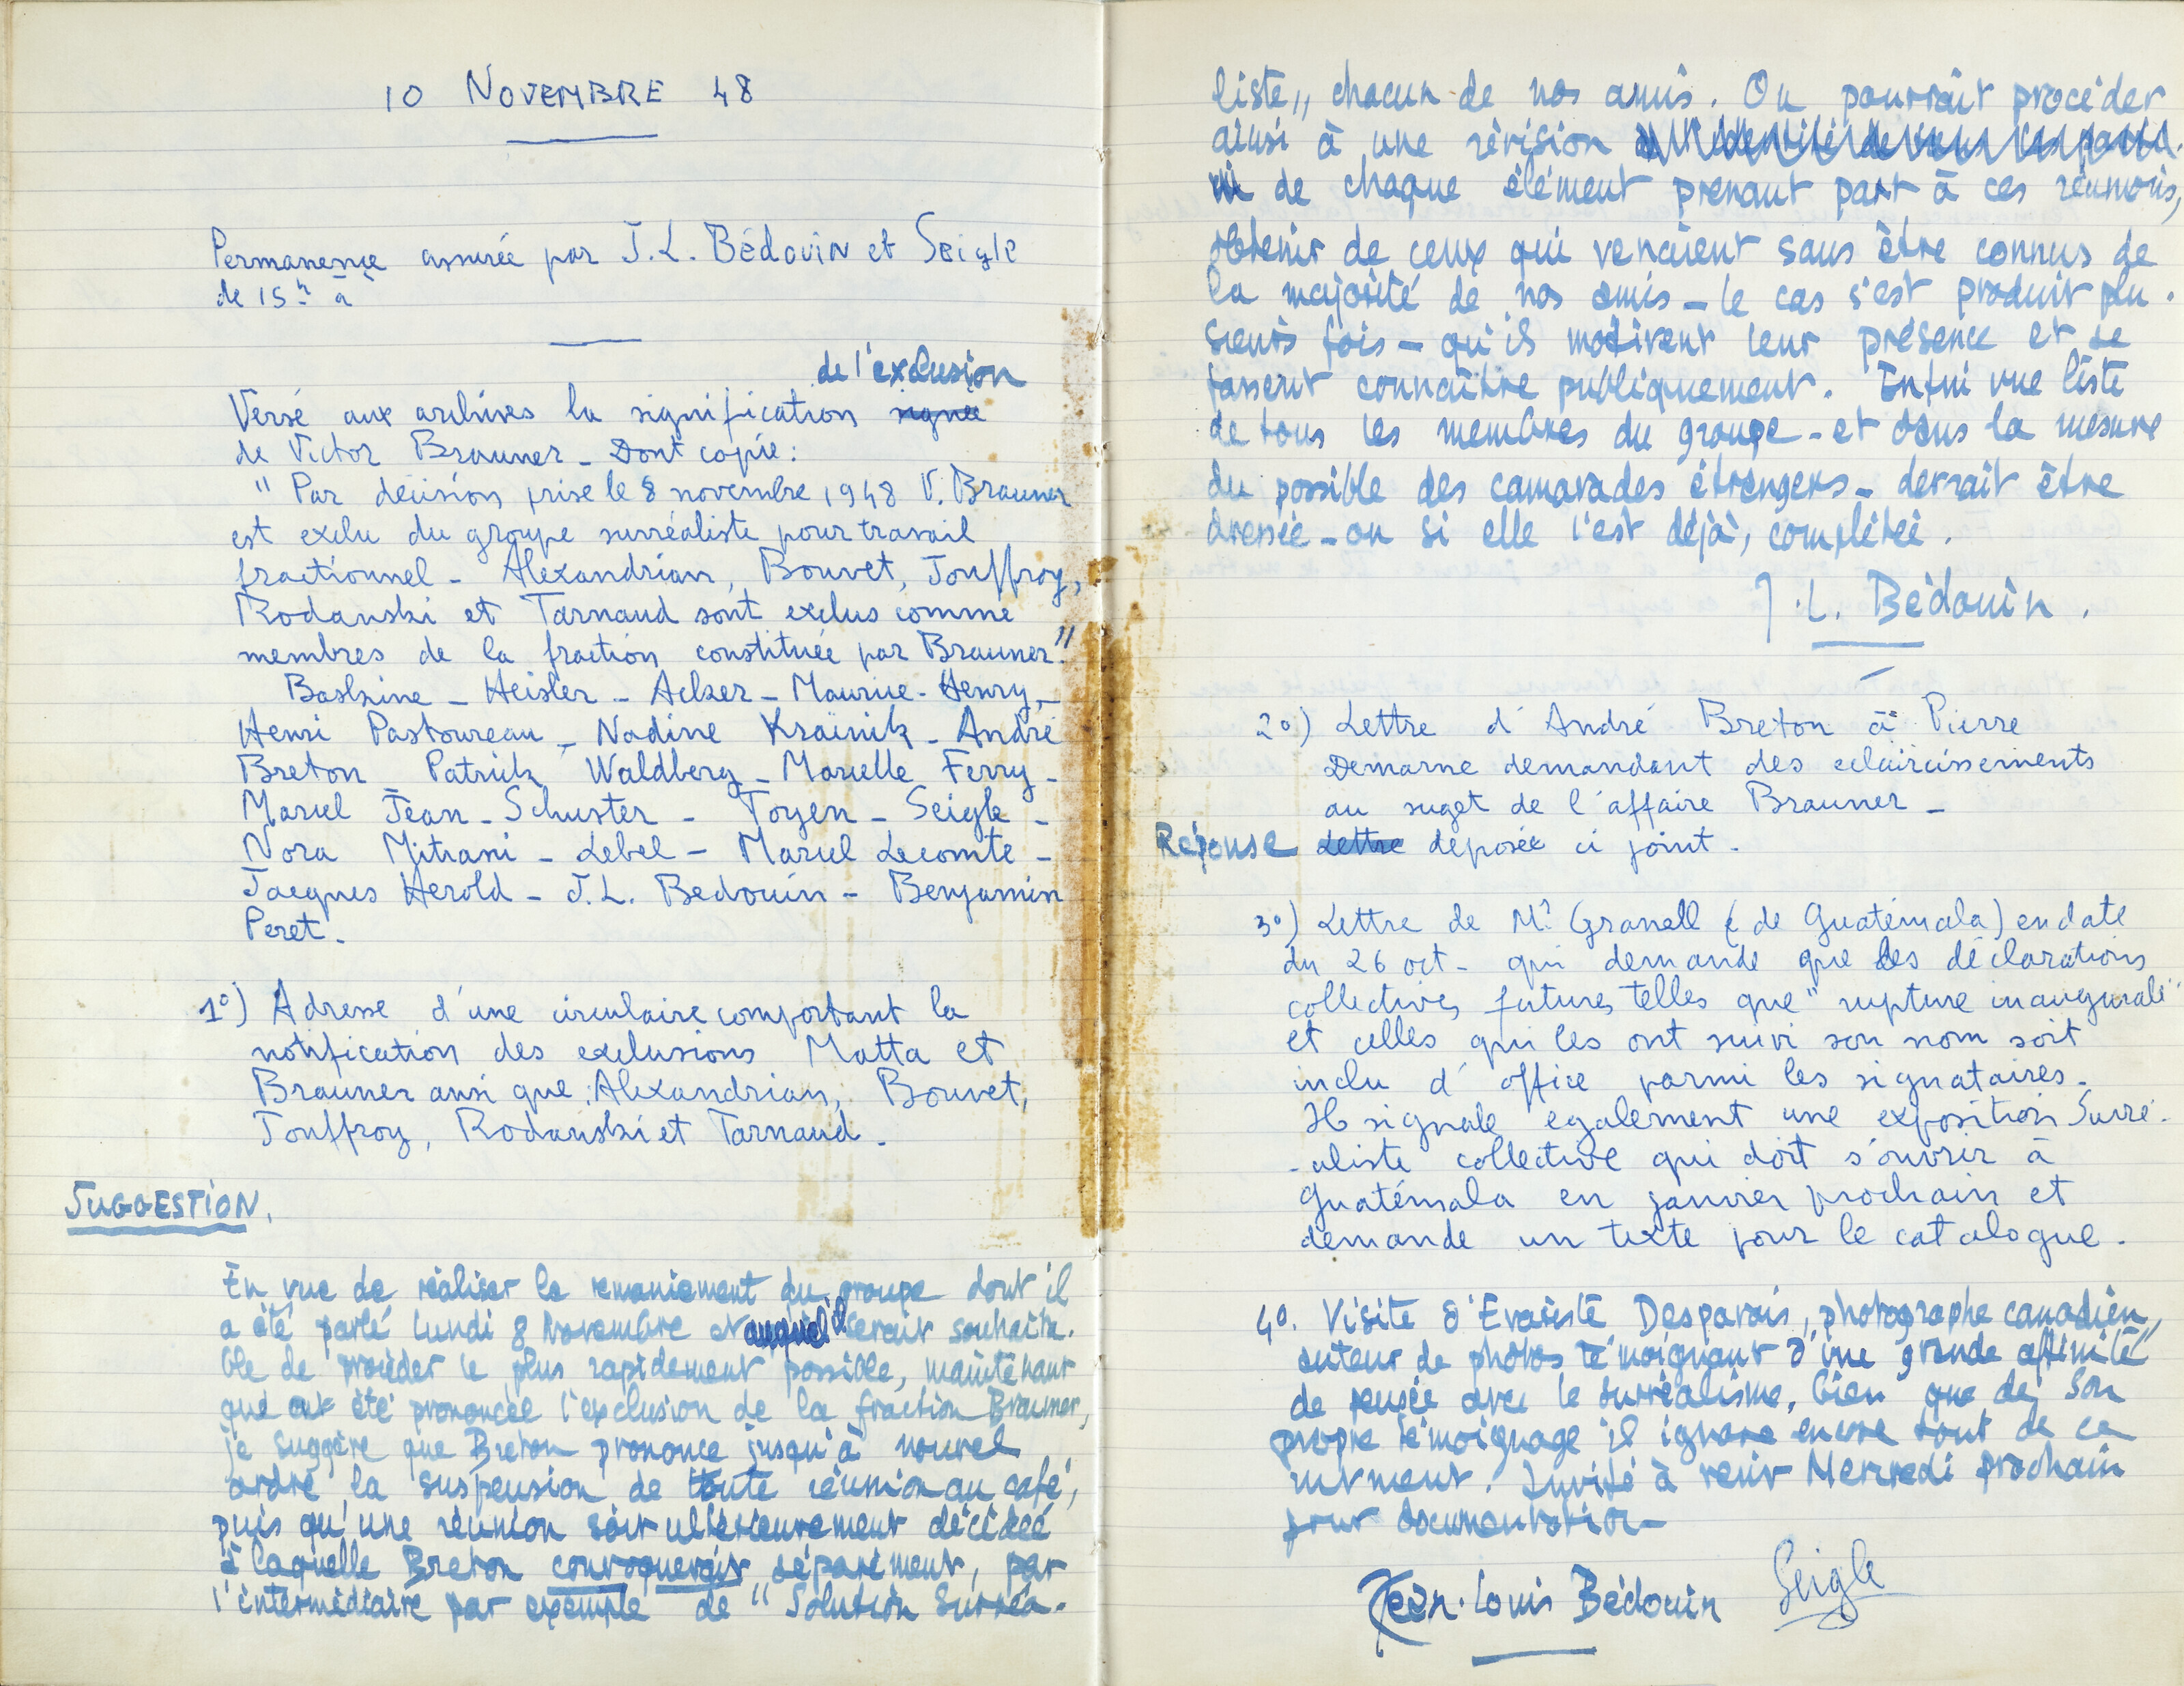 10 NOVEMBRE 48
Permanence assurée par J.L. Bédouin et Seigle
de 15h à
de l'exclusion
Versé aux archives la signification signée
de Victor Brauner _ Dont copie :
" Par décision prise le 8 novembre 1948 V. Brauner
est exclu du groupe surréaliste pour travail
fractionnel - Alexandrian, Bouvet, Jouffroy,
Rodanski et Tarnaud sont exclus comme
membres de la fraction constituée par Brauner."
Baskine _ Heisler _ Acker _ Maurice - Henry _
Henri Pastoureau _ Nadine Kraïnik _ André
Breton Patrick Waldberg _ Marielle Ferry _
Marcel Jean _ Schuster _ Toyen _ Seigle _
Nora Mitrani _ Lebel _ Marcel Lecomte _
Jacques Herold _ J.L. Bedouin _ Benjamin
Peret.
1°) Adresse d'une circulaire comportant la
notification des exclusions Matta et
Brauner ansi que : Alexandrian, Bouvet,
Jouffroy, Rodanski et Tarnaud.
SUGGESTION.
En vue de réaliser le remaniement du groupe dont il
a été parlé Lundi 8 Novembre et auquel il serait souhaita.
ble de procéder le plus rapidement possible, maintenant
que ont été prononcée l'exclusion de la fraction Brauner,
je suggère que Breton prononce jusqu'à nouvel
ordre la suspension de toute réunion au café,
puis qu'une réunion soit ultérieurement décidée
à laquelle Breton convoquerait séparément, par
l'intermédiaire par exemple de "Solution Surréa-
liste" chacun de nos amis. On pourrait procéder
ainsi à une révision
de chaque élément prenant part à ces réunions,
obtenir de ceux qui venaient sans être connus de
la majorité de nos amis _ le cas s'est produit plu.
sieurs fois _ qu'ils motivent leur présence et se
fassent connaître publiquement. Enfin une liste
de tous les membres du groupe _ et dans la mesure
du possible des camarades étrangers _ devrait être
dressée _ ou si elle l'est déjà, complétée.
J.L. Bédouin.
2°) Lettre d'André Breton à Pierre
Demarne demandant des eclaircissements
au suget de l'affaire Brauner _
Réponse Lettre déposée ci joint.
3°) Lettre de Mr Granell ( de Guatémala) en date
du 26 oct - qui demande que les déclarations
collectives futures telles que " rupture inaugurale"
et celles qui les ont suivi son nom soit
inclu d'office parmi les signataires.
Il signale egalement une exposition Surré-
-aliste collective qui doit s'ouvrir à
Guatémala en janvier prochain et
demande un texte pour le catalogue.
4°. Visite d'Evariste Desparois, photographe canadien,
auteur de photos témoignant d'une grande affinité
de pensée avec le surréalisme, bien que de son
propre témoignage il ignore encore tout de ce
mvment. Invité à venir Mercredi prochain
pour documentation _
Jean-Louis Bédouin Seigle